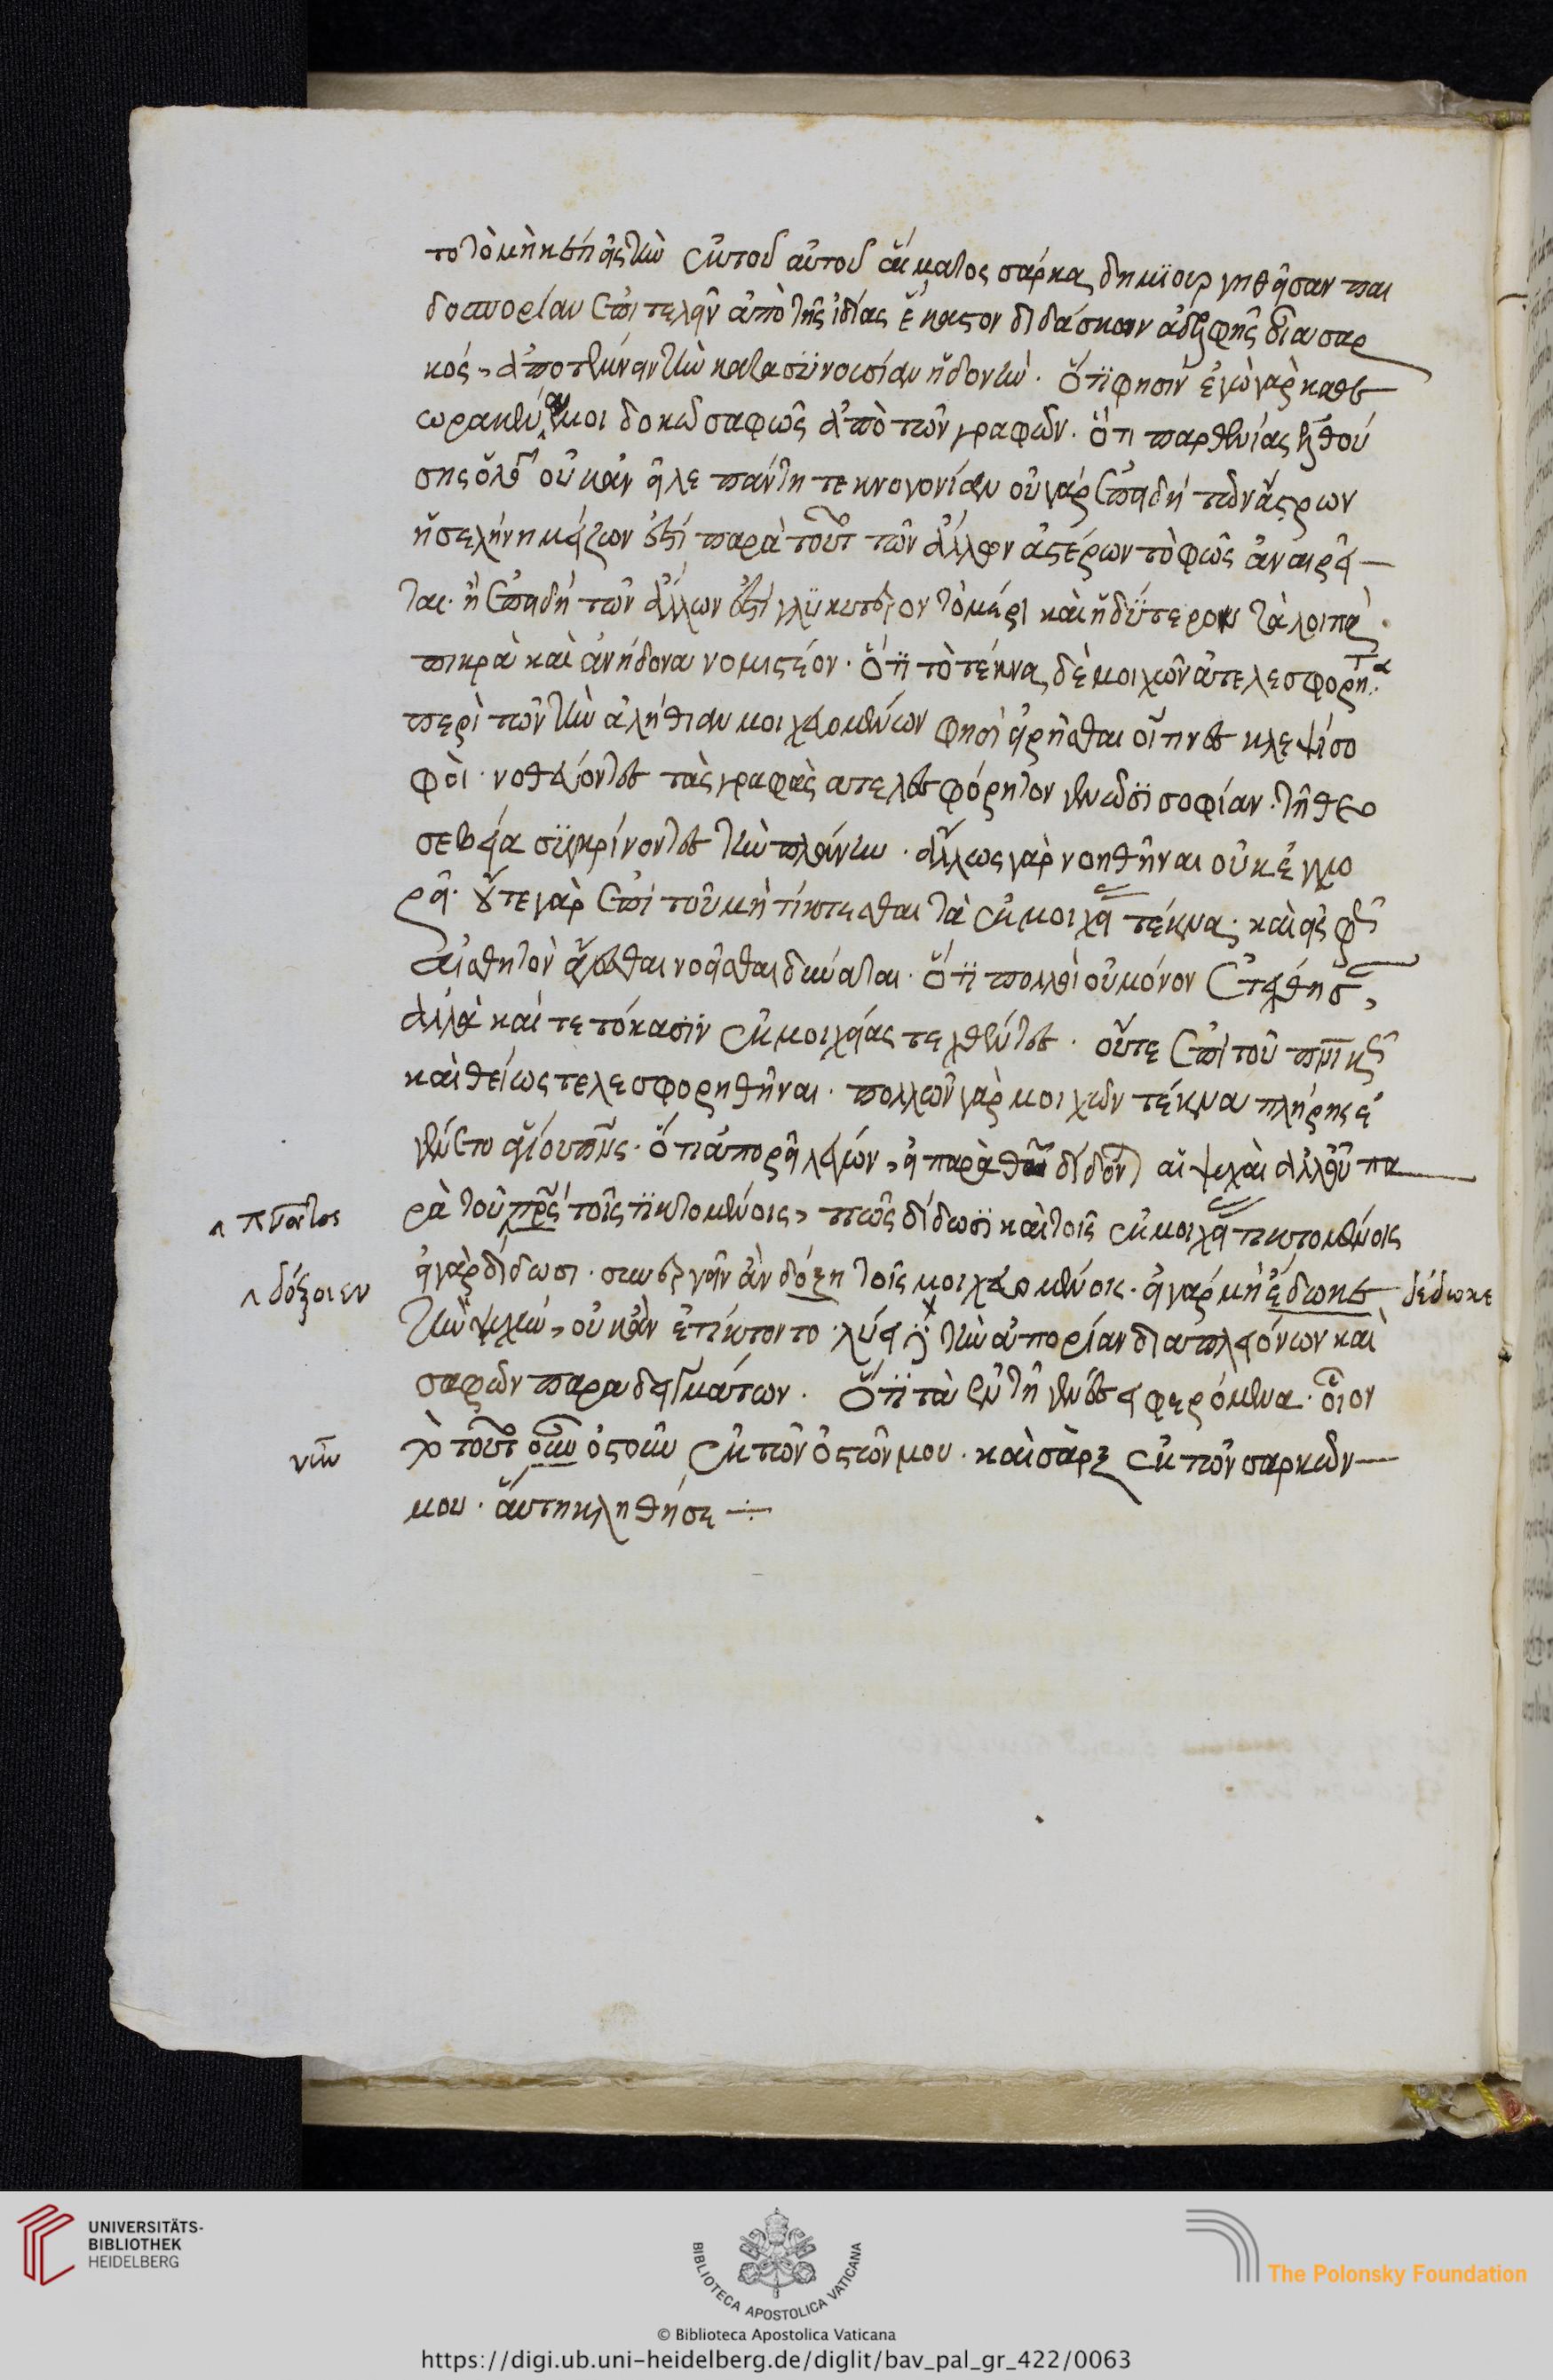 το τὸ μηκέτι εἰς τὴν ἐκ τοῦ αὐτοῦ αἵματος σάρκα δημιουργηθεῖσαν παι
δοσπορίαν ἐπιτελεῖν ἀπὸ τῆς ἰδίας ἕκαστον διδάσκων ἀδελφῆς διὰ σαρ
κός, ἀποτέμνειν τὴν κατὰ συνουσίαν ἡδονήν. Ὅτι φησὶν ἐγὼ γὰρ καθε
ωρακέναι μοι δοκῶ σαφῶς ἀπὸ τῶν γραφῶν. ὅτι παρθενίας ἐλθού
σης ὁ λόγος οὐκ ἀνεῖλε πάντη τεκνογονίαν οὐ γὰρ ἐπειδὴ τῶν ἄστρων
ἡ σελήνη μείζων ἐστὶ παρὰ τοῦτο τῶν ἄλλων ἀστέρων τὸ φῶς ἀναιρεῖ
ται. ἢ ἐπειδὴ τῶν ἄλλων ἐστὶ γλυκύτερον τὸ μέλι καὶ ἡδύτερον τὰ λοιπὰ
πικρὰ καὶ ἀνήδονα νομιστέον. Ὅτι τὸ τέκνα δὲ μοιχῶν ἀτελεσφόρητα
περὶ τῶν τὴν ἀλήθειαν μοιχευομένων φησὶ εἰρῆσθαι οἵτινες κλεψίσο
φοι. νοθεύοντες τὰς γραφὰς ατελεσφόρητον γεννῶσι σοφίαν. τῇ θεο
σεβείᾳ συγκρίνοντες τὴν πλάνην. ἄλλως γὰρ νοηθῆναι οὐκ ἐγχω
ρεῖ. οὔτε γὰρ ἐπὶ τοῦ μὴ τίκτεσθαι τὰ ἐκ μοιχείας τέκνα. καὶ εἰς φῶς
αἰσθητὸν ἄγεσθαι νοεῖσθαι δύναται. ὅτι πολλοὶ οὐ μόνον ἐτέχθησαν,
ἀλλὰ καὶ τετόκασιν ἐκ μοιχείας τεχθέντες. οὔτε ἐπὶ τοῦ πνευματικῶς
καὶ θείως τελεσφορηθῆναι. πολλῶν γὰρ μοιχῶν τέκνα πλήρης ἐ
γένετο θείου πνεύματος. Ὅτι ἀπορεῖ λέγων, εἰ παρὰ θεοῦ δίδονται αἱ ψυχαὶ ἀλλ' οὐ πα
ρὰ τοῦ πατρὸς τοῖς τικτομένοις, πῶς δίδωσι καὶ τοῖς ἐκ μοιχείας τικτομένοις
εἰ γὰρ δίδωσι. συνεργεῖν ἂν δόξῃ τοῖς μοιχευομένοις. εἰ γὰρ μὴ ἔδωκε δέδωκε
τὴν ψυχήν, οὐκ ἂν ἐτίκτοντο. λύει δὲ τὴν ἀπορίαν διὰ πλειόνων καὶ
σαφῶν παραδειγμάτων. Ὅτι τὰ ἐν τῇ γενέσει φερόμενα. οἷον
τὸ τοῦτο νῦν ὀστοῦν ἐκ τῶν ὀστῶν μου. καὶ σὰρξ ἐκ τῶν σαρκῶν
μου. αὕτη κληθήσε
δόξοιεν
νῦν
UNIVERSITÄTS-
BIBLIOTHEK
HEIDELBERG
BIBLIOTECA APOSTOLICA VATICANA
The Polonsky Foundation
© Biblioteca Apostolica Vaticana
https://digi.ub.uni-heidelberg.de/diglit/bav_pal_gr_422/0063